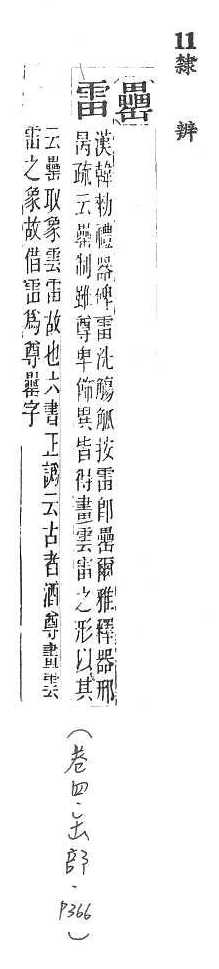 11 隸辨
罍
雷
漢韓勑禮器碑雷洗觴觚按雷卽罍爾雅釋器邢
昺疏云罍制雖尊卑飾異皆得畫雲雷之形以其
云罍取象雲雷故也六書正譌云古者酒尊畫雲
雷之象故借雷為尊罍字
(卷四.去部.P366)